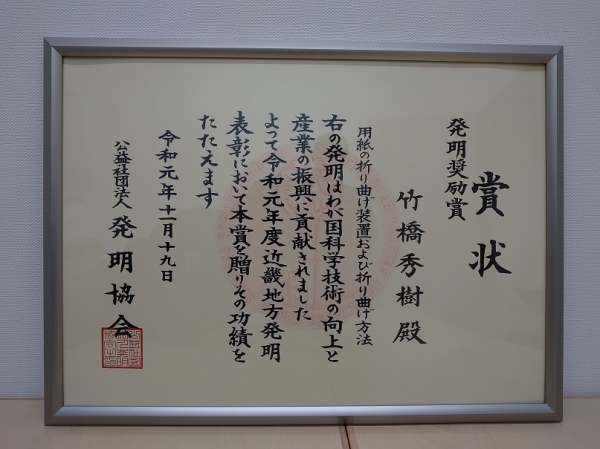 賞状
発明奨励賞
竹橋秀樹殿
用紙の折り曲げ装置および折り曲げ方法
右の発明はわが国科学技術の向上と
産業の振興に貢献されました
よって令和元年度近畿地方発明
表彰において本賞を贈りその功績を
たたえます
令和元年十一月十九日
公益社団法人発明協会